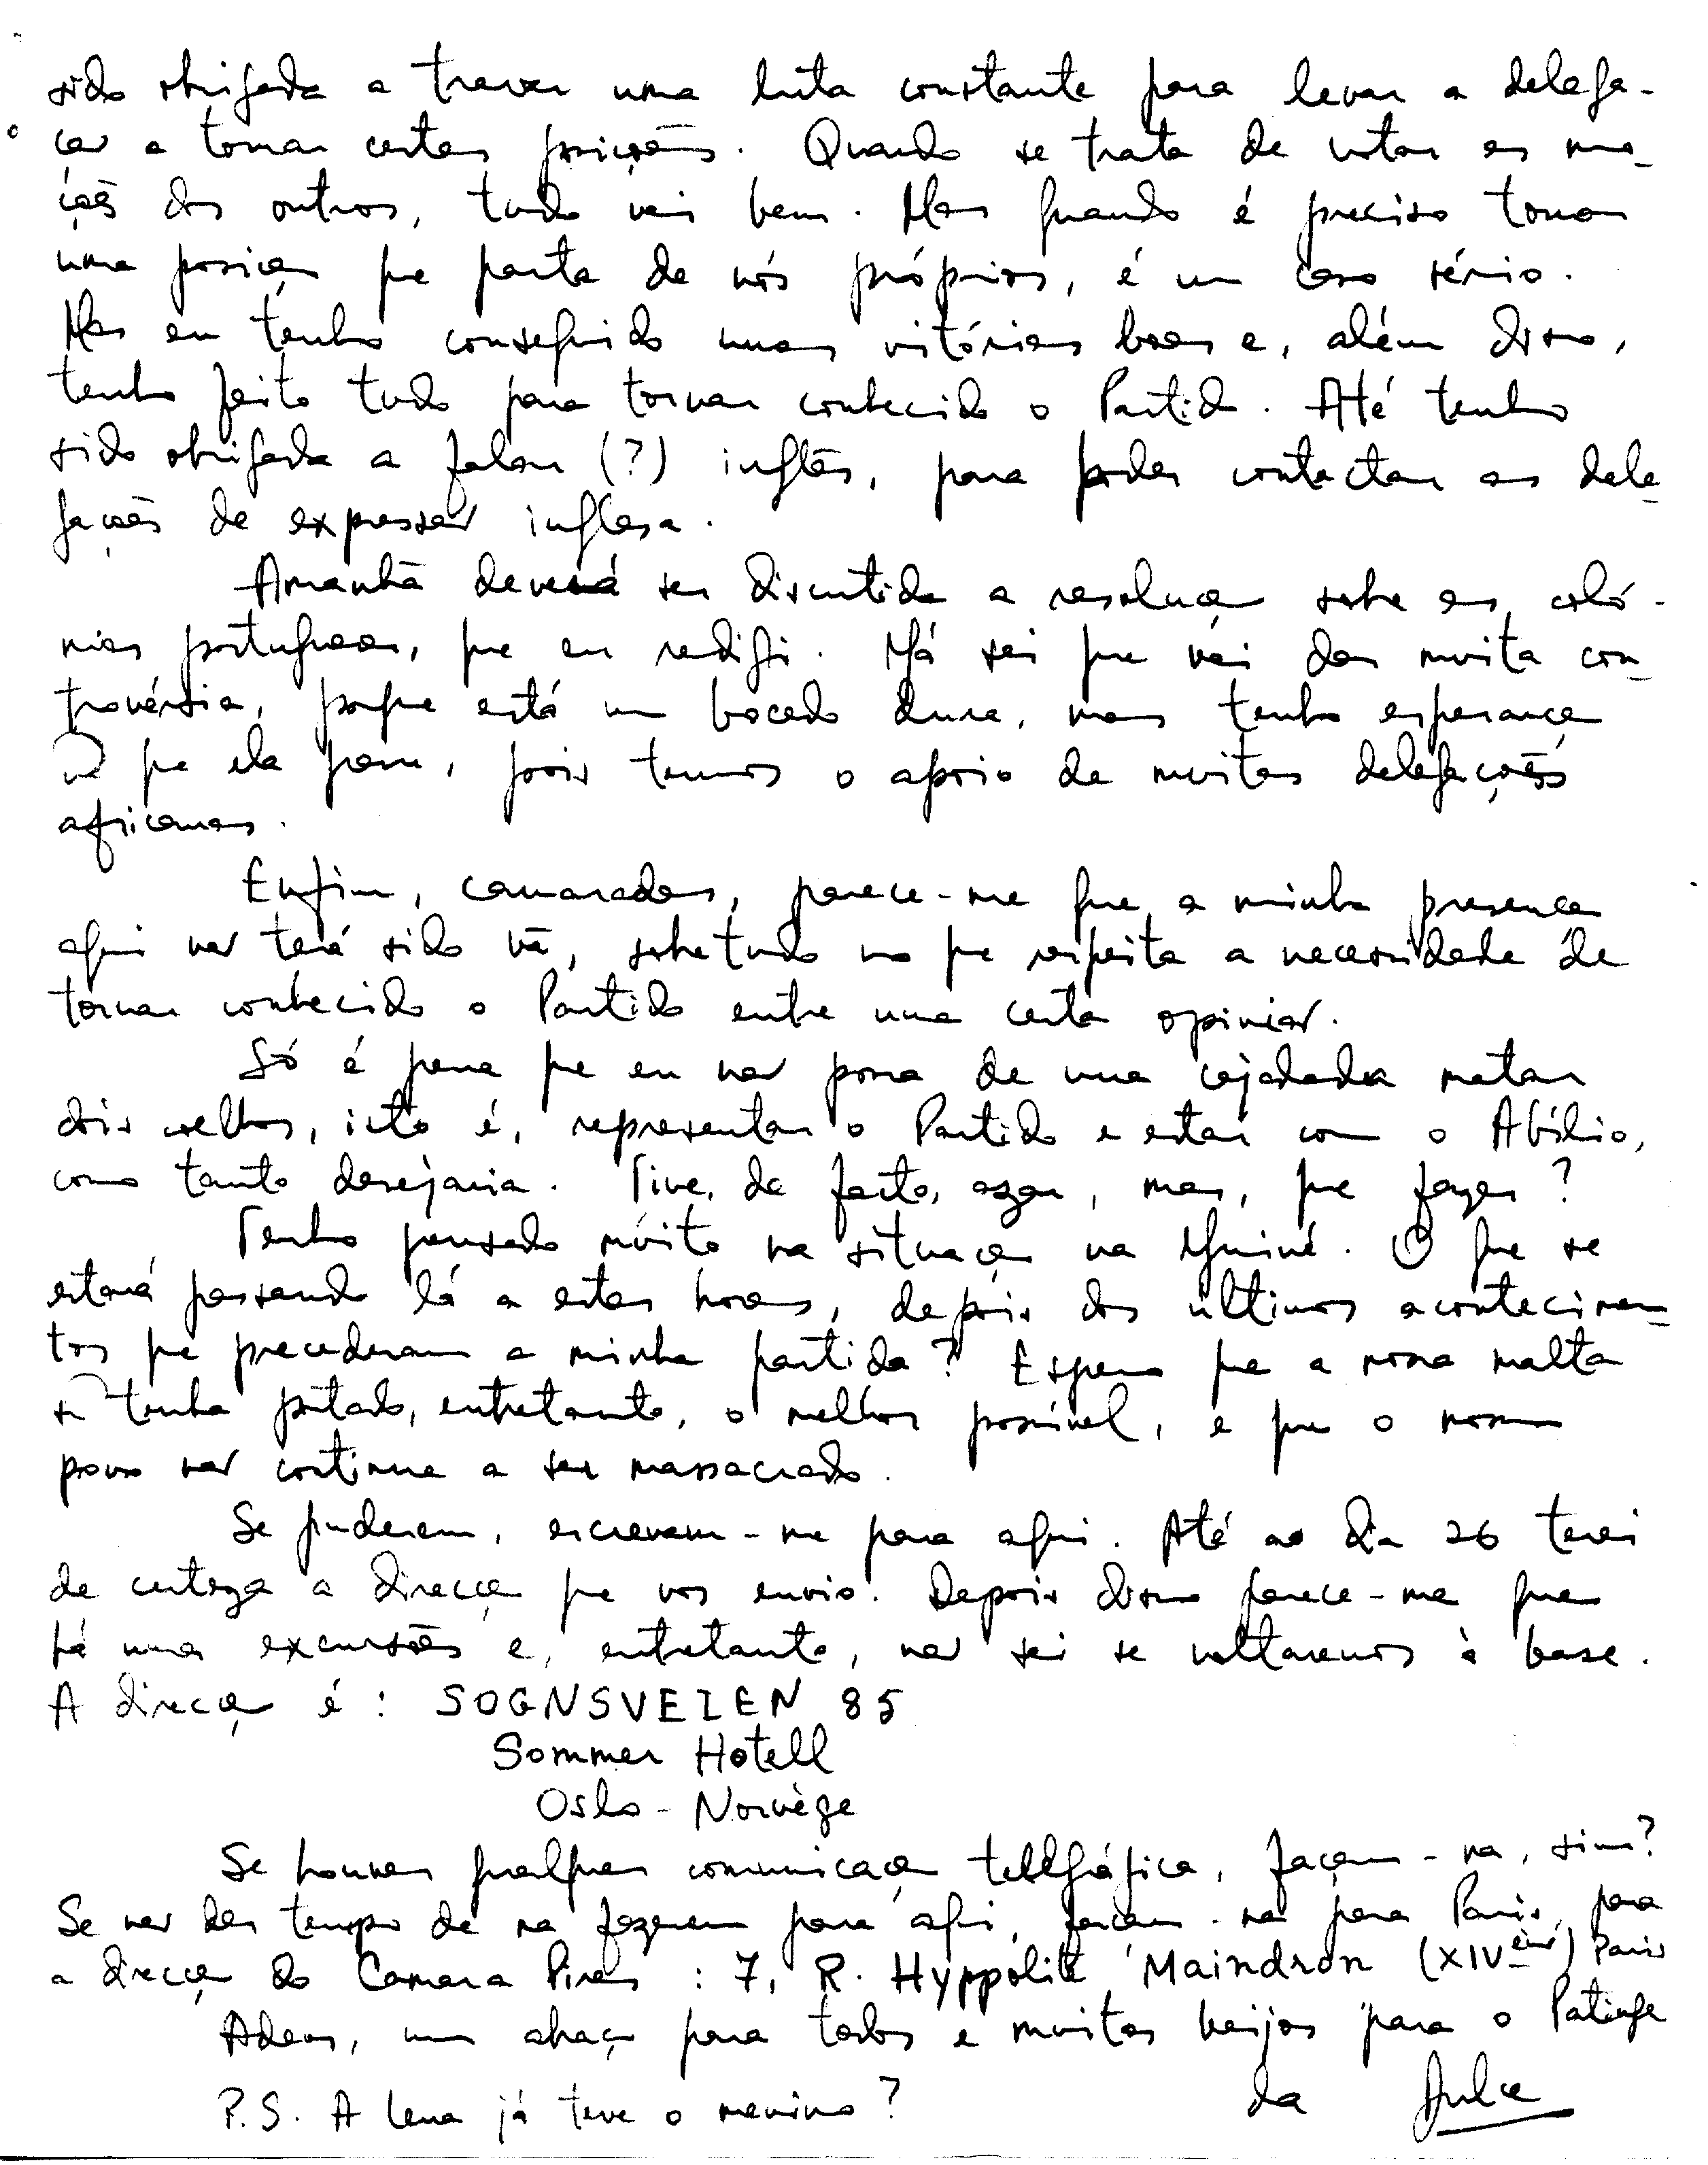 sido obrigada a travar uma luta constante para levar a delega-
ção a tomar certas posições. Quando se trata de votar as mo-
ções dos outros, tudo vai bem. Mas quando é preciso tomar
uma posição que parta de nós próprios, é um caso sério.
Mas eu tenho conseguido umas vitórias boas e, além disso,
tenho feito tudo para tornar conhecido o Partido. Até tenho
sido obrigada a falar (?) inglês, para poder contactar as dele-
gações de expressão inglesa.
Amanhã deverá ser discutida a resolução sobre as coló-
nias portuguesas, que eu redigi. Já sei que vai dar muita con-
trovérsia, porque está um bocado dura, mas tenho esperança
que ela passe, pois temos o apoio de muitas delegações
africanas.
Enfim, camaradas, parece-me que a minha presença
aqui não terá sido vã, sobretudo no que respeita a necessidade de
tornar conhecido o Partido entre uma certa opinião.
Só é pena que eu não possa de uma cajadada matar
dois coelhos, isto é, representar o Partido e estar com o Abílio,
como tanto desejaria. Tive, de facto, azar, mas, que fazer?
Tenho pensado muito na situação na Guiné. O que se
estará passando lá a estas horas, depois dos últimos acontecimen-
tos que precederam a minha partida? Espero que a nossa malta
se tenha portado, entretanto, o melhor possível, e que o nosso
povo não continue a ser massacrado.
Se puderem, escrevam-me para aqui. Até ao dia 26 terei
de certeza a direcção que vos envio. Depois disso parece-me que
há umas excursões e, entretanto, não sei se voltaremos à base.
A direcção é: SOGNSVEIEN 85
Sommer Hotell
Oslo - Norvège
Se houver qualquer comunicação telegráfica, façam-na, sim?
Se não der tempo de na fazerem para aqui, façam-na para Paris, para
a direcção do Camara Pires: 7, R. Hyppolite Maindron (XIVème) Paris
Adeus, um abraço para todos e muitos beijos para o
da
P.S. A Lena já teve o menino?